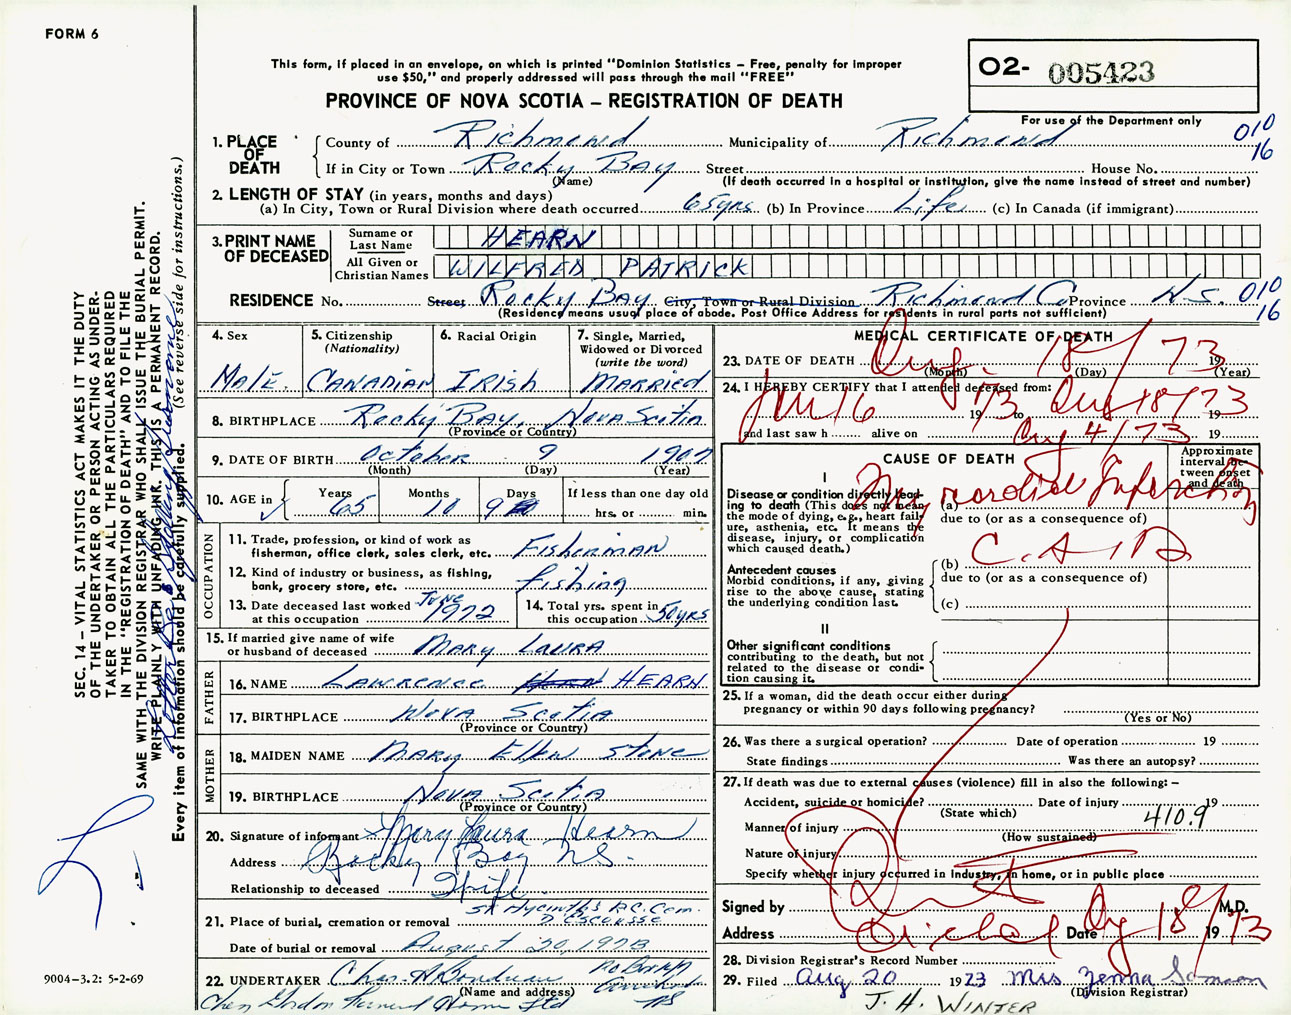 FORM 6
This form, if placed in an envelope, on which is printed "Dominion Statistics – Free, penalty for improper
use $50," and properly addressed will pass through the mail "FREE"
PROVINCE OF NOVA SCOTIA – REGISTRATION OF DEATH
O2- 005423
For use of the Department only
010
16
1. PLACE OF DEATH
County of Richmond Municipality of Richmond
If in City or Town Rocky Bay Street House No.
(Name) (If death occurred in a hospital or institution, give the name instead of street and number)
2. LENGTH OF STAY (in years, months and days)
(a) In City, Town or Rural Division where death occurred 65 yrs (b) In Province Life (c) In Canada (if immigrant)
3. PRINT NAME OF DECEASED
Surname or Last Name HEARN
All Given or Christian Names WILFRED PATRICK
RESIDENCE No. Street Rocky Bay City, Town or Rural Division Richmond Co Province N.S. 010
16
(Residence means usual place of abode. Post Office Address for residents in rural parts not sufficient)
4. Sex
Male.
5. Citizenship
(Nationality)
Canadian
6. Racial Origin
Irish
7. Single, Married,
Widowed or Divorced
(write the word)
Married
8. BIRTHPLACE Rocky Bay, Nova Scotia
(Province or Country)
9. DATE OF BIRTH October 9 1907
(Month) (Day) (Year)
10. AGE in
Years Months Days If less than one day old
65 10 9 hrs. or min.
OCCUPATION
11. Trade, profession, or kind of work as
fisherman, office clerk, sales clerk, etc. Fisherman
12. Kind of industry or business, as fishing,
bank, grocery store, etc. fishing
13. Date deceased last worked
at this occupation June 1972
14. Total yrs. spent in
this occupation 50 yrs
15. If married give name of wife
or husband of deceased Mary Laura
FATHER
16. NAME Lawrence HEARN
17. BIRTHPLACE Nova Scotia
(Province or Country)
MOTHER
18. MAIDEN NAME Mary Ellen Stone
19. BIRTHPLACE Nova Scotia
(Province or Country)
20. Signature of informant Mary Laura Hearn
Address Rocky Bay N.S.
Relationship to deceased Wife
21. Place of burial, cremation or removal St Hyacinths R.C. Cem.
D'Escousse
Date of burial or removal August 20, 1973
22. UNDERTAKER Chas. A Boudreau
(Name and address)
Funeral Home Ltd
NS
9004-3.2: 5-2-69
MEDICAL CERTIFICATE OF DEATH
23. DATE OF DEATH Aug. 18 / 73 19
(Month) (Day) (Year)
24. I HEREBY CERTIFY that I attended deceased from:
Jan 16 19 73 to Aug 18/73 19
and last saw h alive on Aug 4/73 19
CAUSE OF DEATH
Approximate
interval be-
tween onset
and death
I
Disease or condition directly lead-
ing to death (This does not mean
the mode of dying, e.g., heart fail-
ure, asthenia, etc. It means the
disease, injury, or complication
which caused death.)
(a) Myocardial Infarction
due to (or as a consequence of)
Antecedent causes
Morbid conditions, if any, giving
rise to the above cause, stating
the underlying condition last.
(b)
due to (or as a consequence of)
(c)
II
Other significant conditions
contributing to the death, but not
related to the disease or condi-
tion causing it.
25. If a woman, did the death occur either during
pregnancy or within 90 days following pregnancy?
(Yes or No)
26. Was there a surgical operation? Date of operation 19
State findings Was there an autopsy?
27. If death was due to external causes (violence) fill in also the following: –
Accident, suicide or homicide? Date of injury 19
(State which)
Manner of injury 410.9
(How sustained)
Nature of injury
Specify whether injury occurred in Industry, in home, or in public place
Signed by M.D.
Address Arichat Date Aug 18/73 19
28. Division Registrar's Record Number
29. Filed Aug 20 1973 Mrs Zenna Samson
(Division Registrar)
J. H. WINTER
SEC. 14 – VITAL STATISTICS ACT MAKES IT THE DUTY
OF THE UNDERTAKER OR PERSON ACTING AS UNDER-
TAKER TO OBTAIN ALL THE PARTICULARS REQUIRED
IN THE "REGISTRATION OF DEATH" AND TO FILE THE
SAME WITH THE DIVISION REGISTRAR WHO SHALL ISSUE THE BURIAL PERMIT.
WRITE PLAINLY WITH UNFADING INK. THIS IS A PERMANENT RECORD.
Every item of information should be carefully supplied. (See reverse side for instructions.)